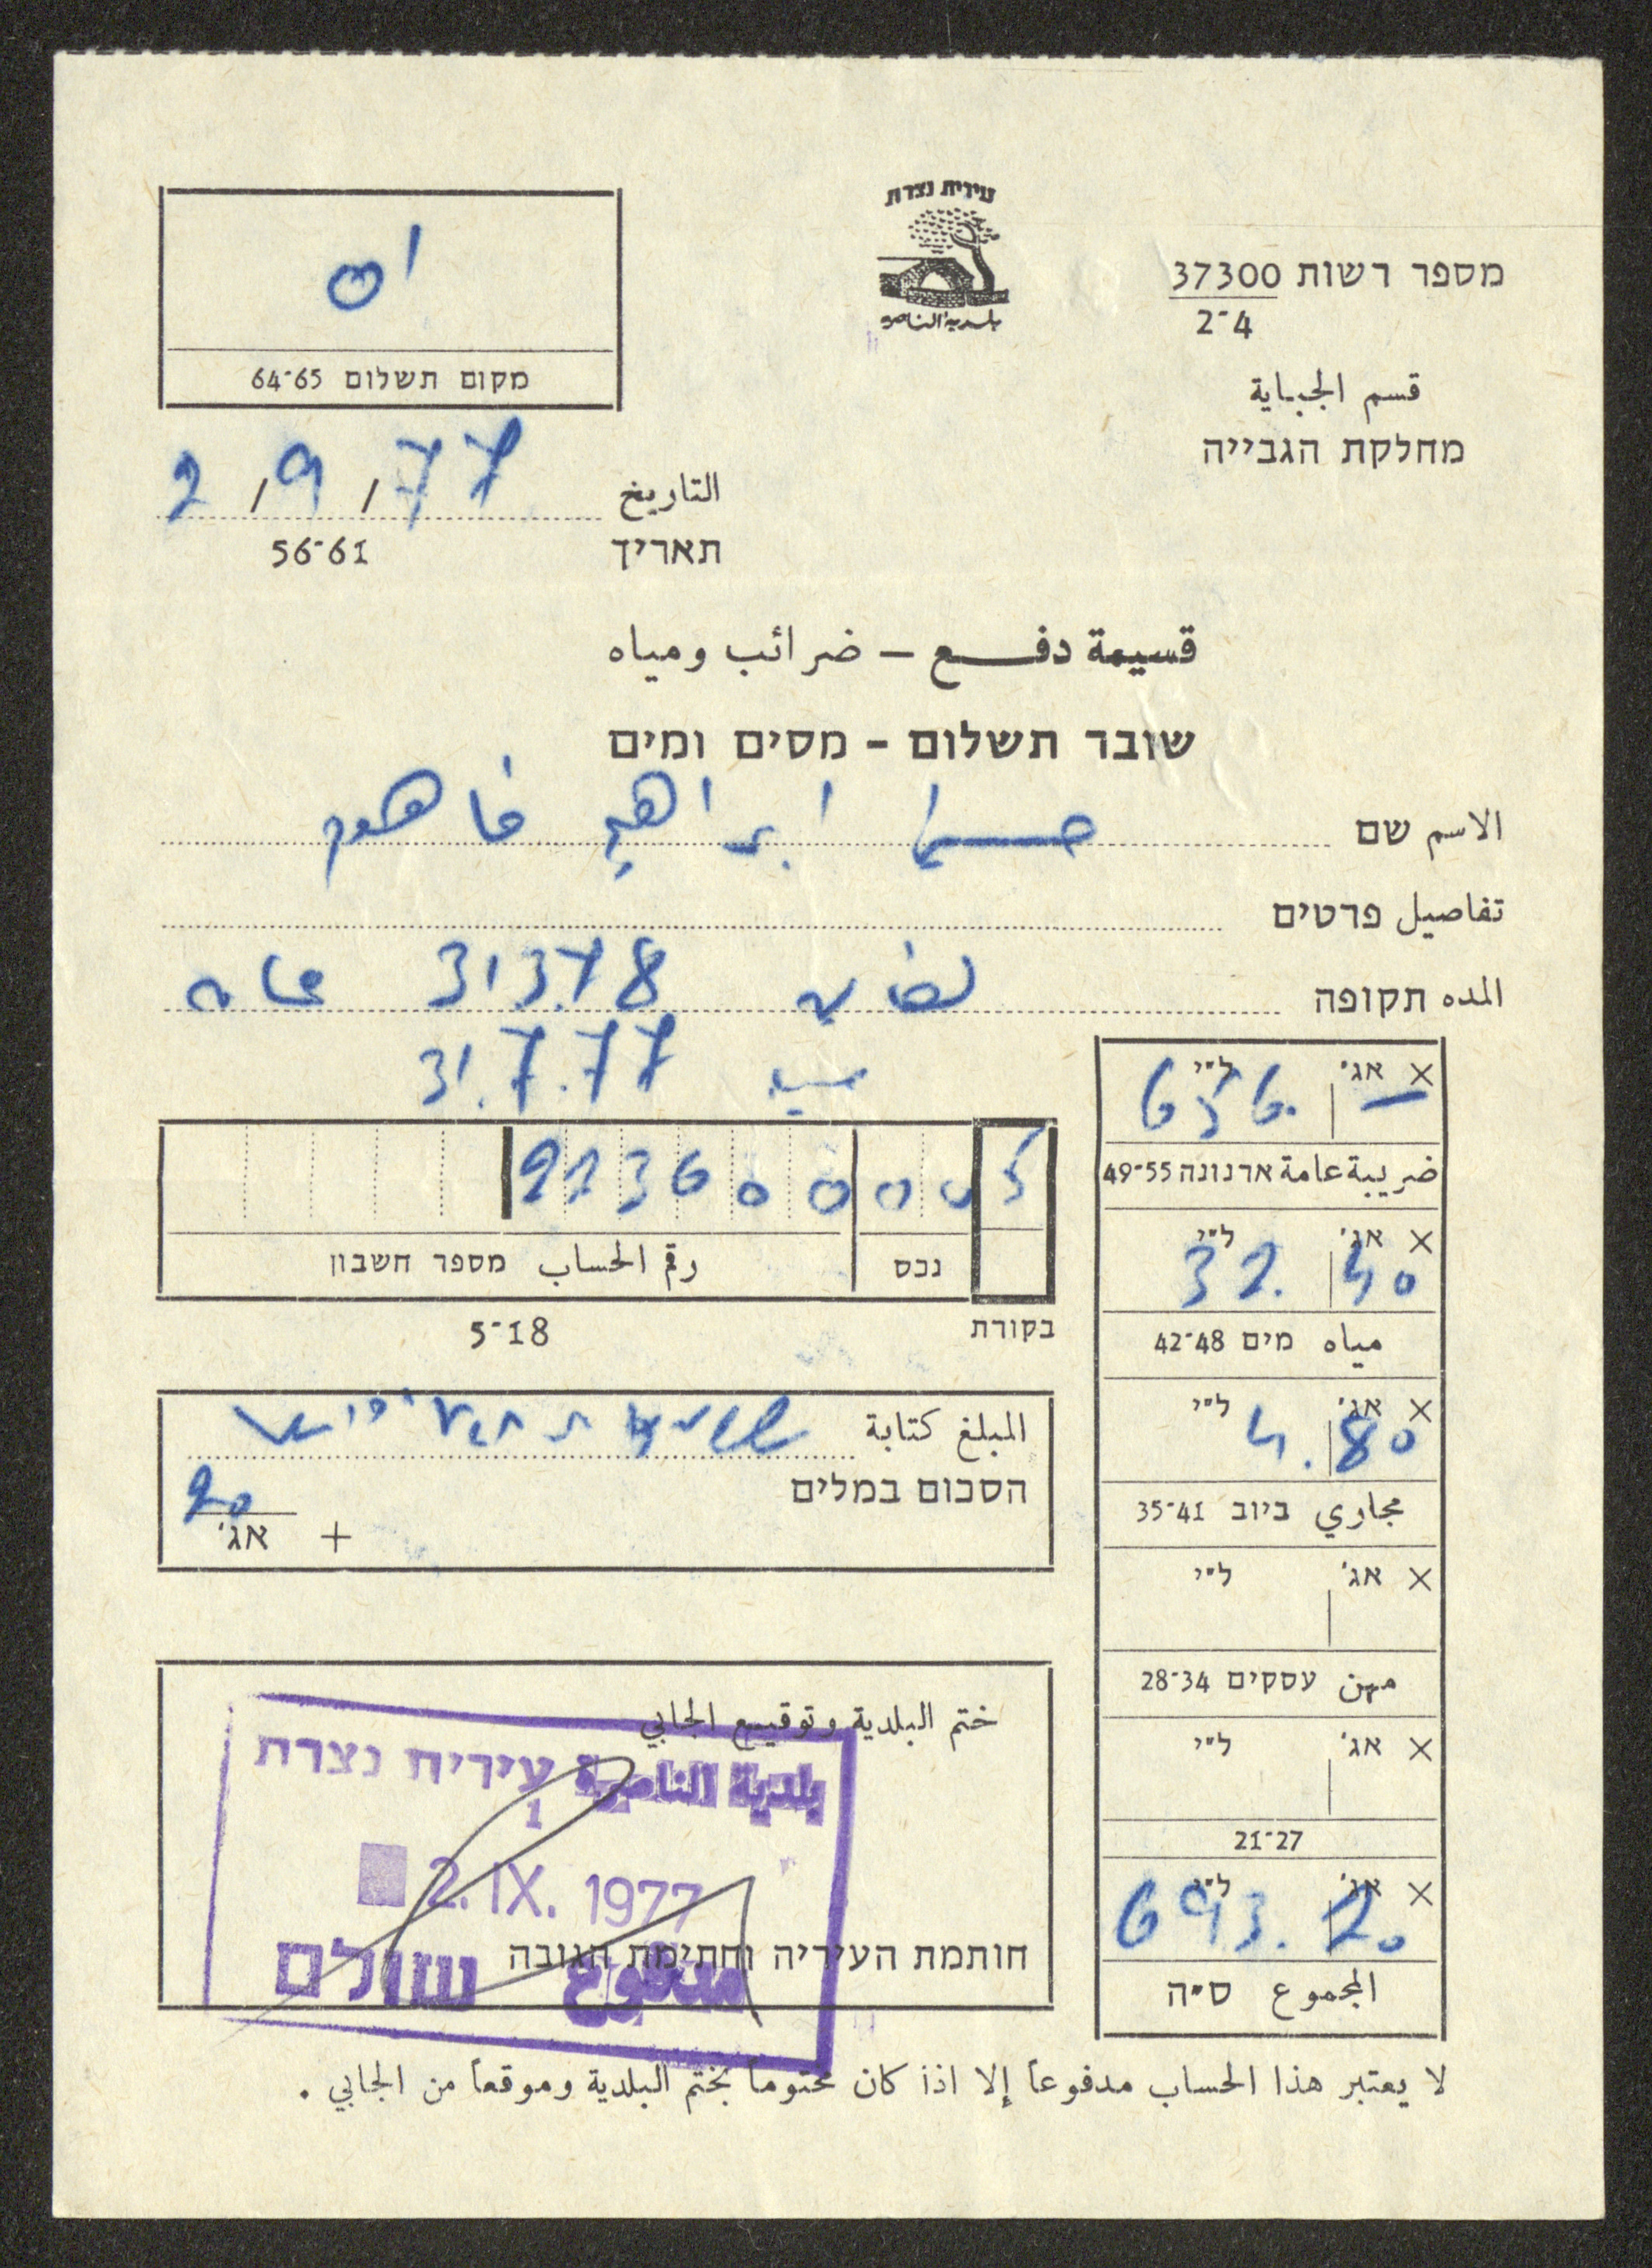 עירית נצרת
بلدية الناصرة
מספר רשות 37300
2-4
قسم الجباية
מחלקת הגבייה
מקום תשלום 64-65
التاريخ 2/9/77
תאריך 56-61
قسيمة دفع – ضرائب ومياه
שובר תשלום - מסים ומים
الاسم שם ابراهيم فاهوم
تفاصيل פרטים
المده תקופה لغاية 31.3.78
31.7.77
× אג׳ ל״י 656. —
ضريبة عامة ארנונה 49-55
× אג׳ ל״י 32. 40
مياه מים 42-48
× אג׳ ל״י 4. 80
مجاري ביוב 35-41
× אג׳ ל״י
مهن עסקים 28-34
× אג׳ ל״י
21-27
× אג׳ ל״י 693. 20
المجموع ס״ה
2136000005
رقم الحساب מספר חשבון נכס
5-18 בקורת
المبلغ كتابة
הסכום במלים
20
+ אג׳
ختم البلدية وتوقيع الجابي
بلدية الناصرة עירית נצרת
1
2. IX. 1977
חותמת העיריה וחתימת הגובה
مدفوع שולם
لا يعتبر هذا الحساب مدفوعاً إلا اذا كان مختوماً بختم البلدية وموقعاً من الجابي .